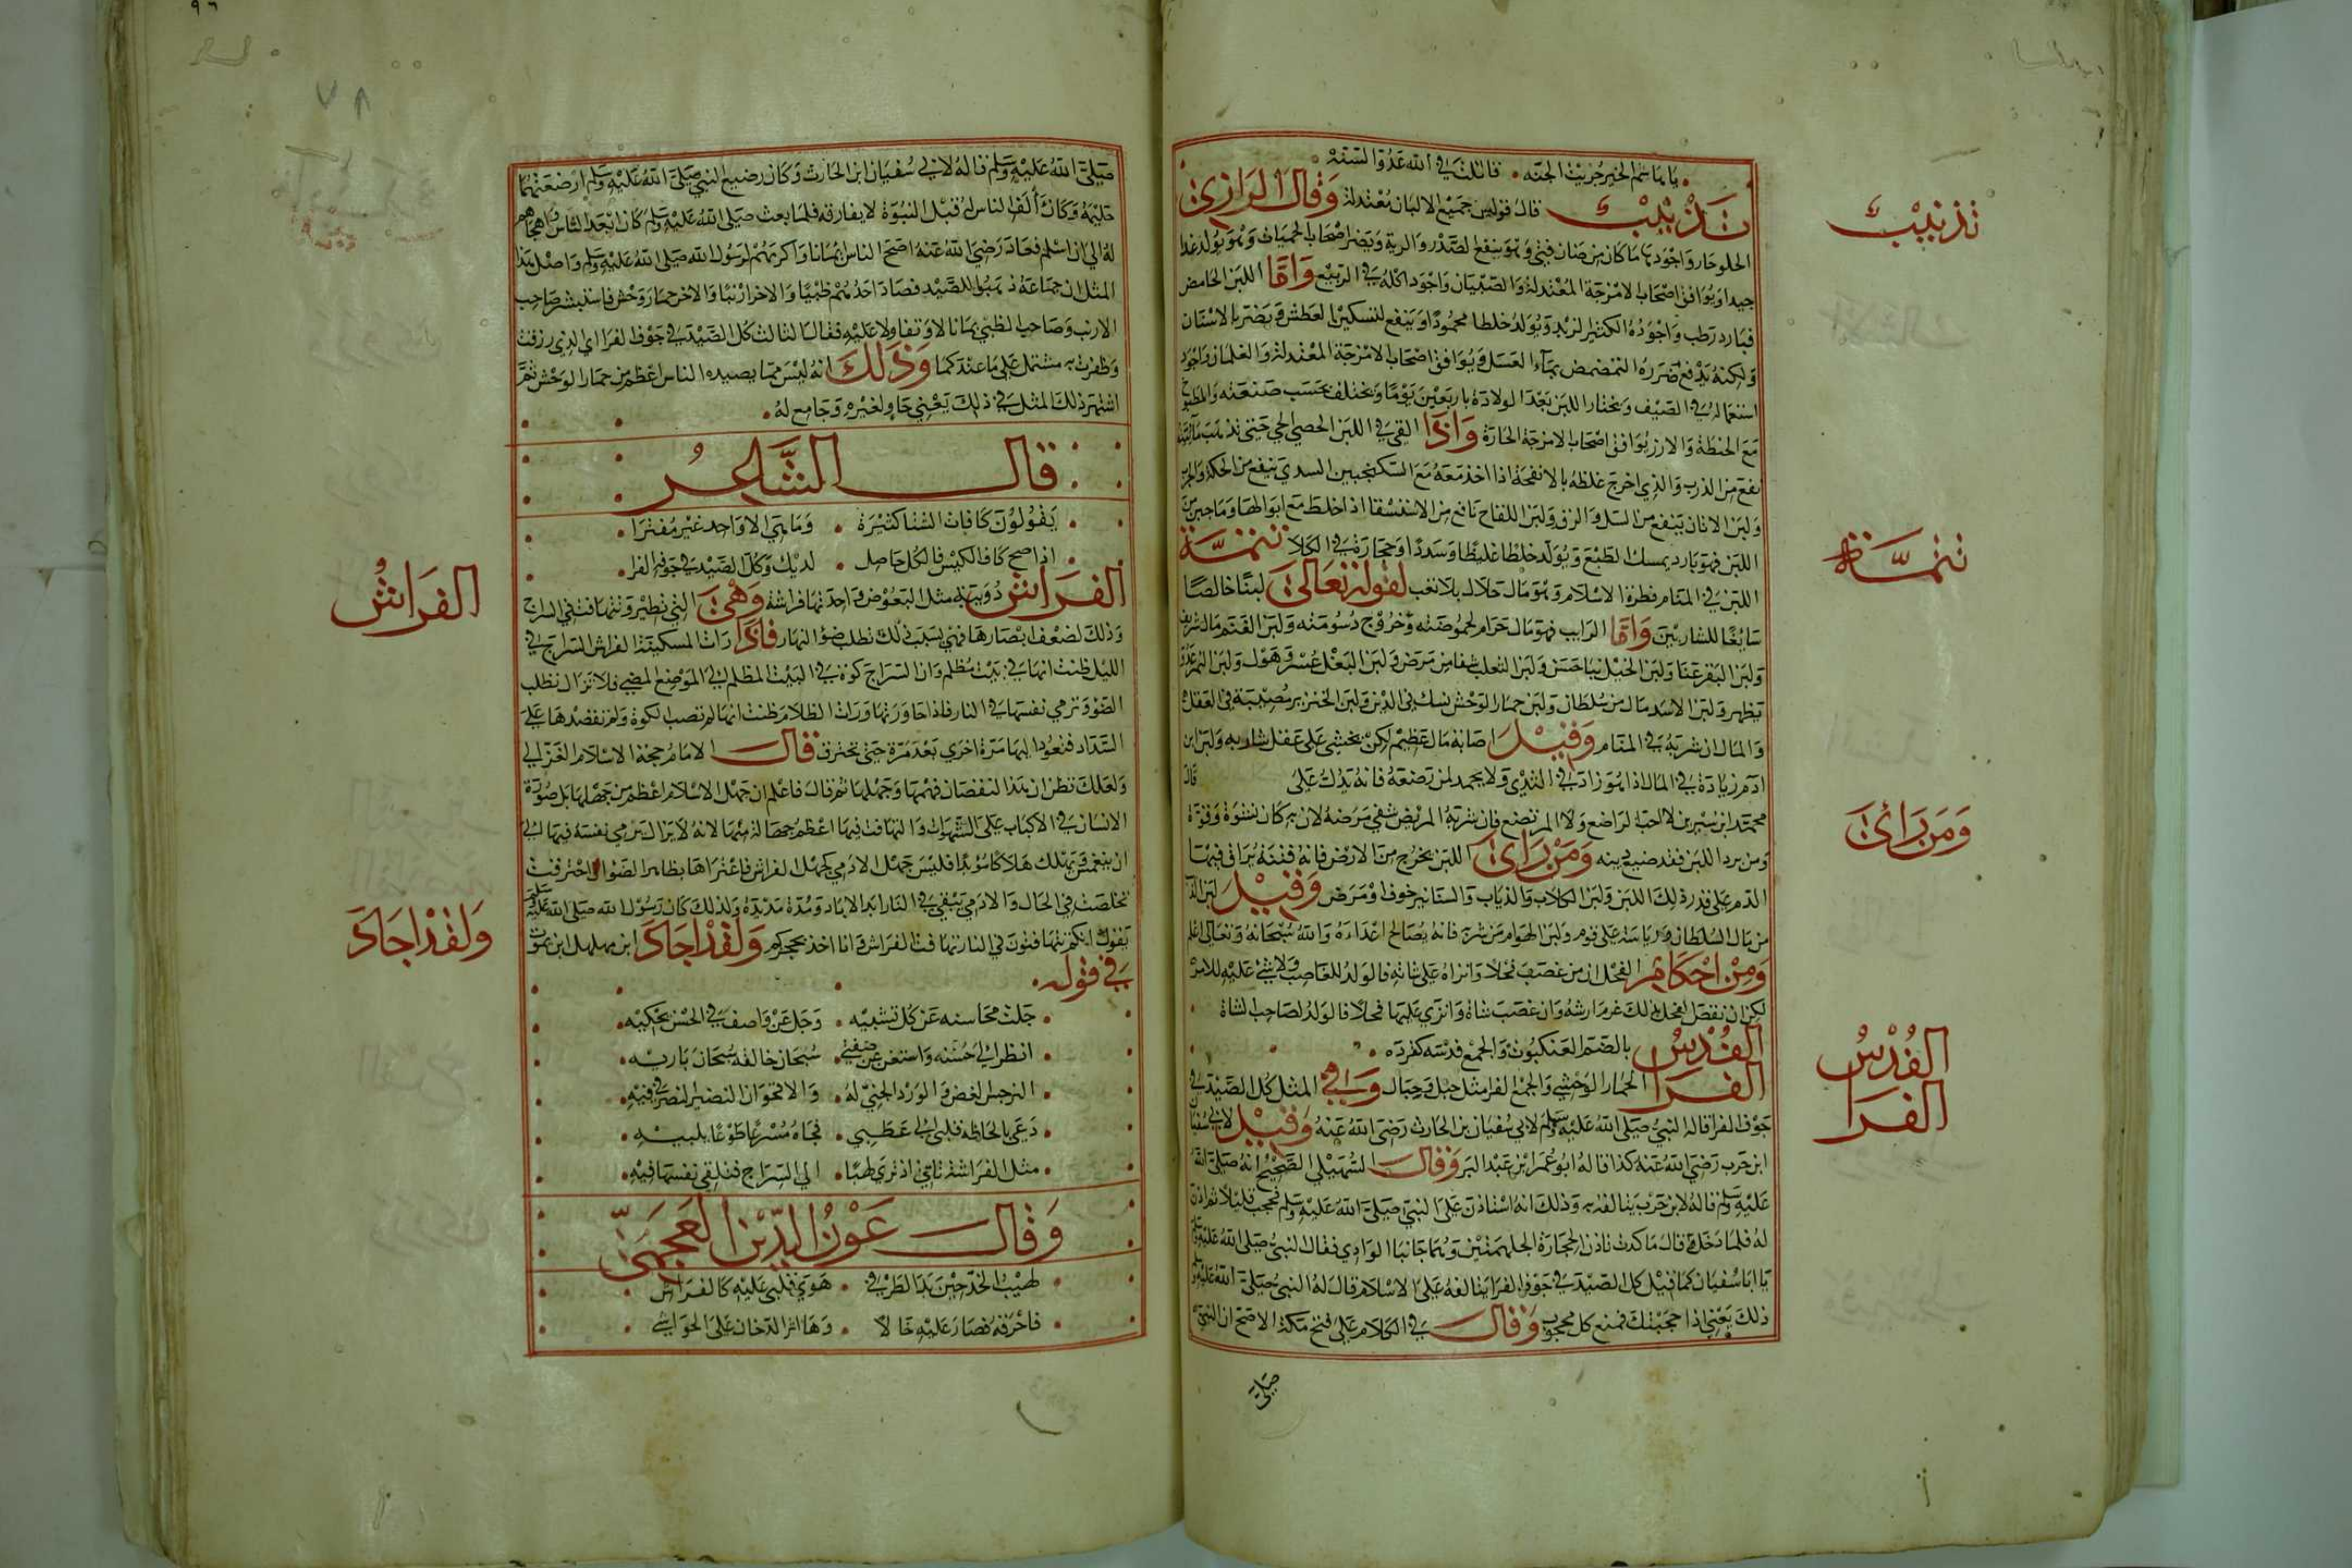 يا باشم الخير جزيت الجنه فاتلني في الله عدو السنه
تذنيب قال قوليس جميع الالبان معتدلة وقال الرازي
الحلو حار واجودها ما كان من ضان فتى وهو ينفع الصدر والرية ويضر اصحاب الحميات وهو يولد غذا
جيدا ويوافق اصحاب الامزجة المعتدلة والصبيان واجود اكله في الربيع واما اللبن الحامض
فبارد رطب واجوده الكثير الزبد ويولد خلطا محمودا وينفع لتسكين العطش ويضر بالاسنان
ولكنه يدفع ضرره التمضمض بماء العسل ويوافق اصحاب الامزجة المعتدلة والغلمان واجود
استعماله في الصيف ويختار اللبن بعد الولادة باربعين يوما ويختلف بحسب صنعته والمطبوخ
مع الحنطة والارز يوافق اصحاب الامزجة الحارة واذا القي في اللبن الحصي الحمي حتى تذهب مائيته
نفع من الذرب والذي اخرج غلظه بالانفحة اذا اخذ معه مع السكنجبين السدي ينفع من الحكة والجرب
ولبن الاتان ينفع من السل والزق ولبن اللقاح نافع من الاستسقا اذا خلط مع ابوالها وما جبن من
اللبن فهو بارد يمسك الطبع ويولد خلطا غليظا وسددا وحجارة في الكلا تتمة
اللبن في المنام فطرة الاسلام وهو مال حلال بلا تعب لقوله تعالى لبنا خالصا
سايغا للشاربين واما الرايب فهو مال حرام لحموضته وخروج دسومته ولبن الغنم مال شريف
ولبن البقر غنا ولبن الخيل ثنا حسن ولبن الثعلب شفا من مرض ولبن البغل عسر وهول ولبن النمر عدو
يظهر ولبن الاسد مال من سلطان ولبن حمار الوحش نسك في الدين ولبن الخنزير مصيبة في العقل
والمال ان شربه في المنام وقيل اصابة مال عظيم لكن يخشى على عقل شاربه ولبن ابن
ادم زيادة في المال اذا هو زاد في الثدي ولا يحمد لمن رضعه فانه يدل على قال
محمد ابن سيرين لا احب الراضع ولا المرتضع فان شربه المريض شفي مرضه لانه كان نشوة وقوة
ومن بزد اللبن فقد ضيع دينه ومن راى اللبن يخرج من الارض فانه فتنة يراق فيها
الدم على قدر ذلك اللبن ولبن الكلاب والذياب والسنانير خوف او مرض وقيل لبن الذ
من مال السلطان ورياسة على قوم ولبن الهوام من شربه فانه يصالح اعداءه والله سبحانه وتعالى اعلم
ومن احكام الفحل ان من غصب فحلا وانزاه على شاته فالولد للغاصب ولا شئ عليه للانزا
لكن ان نقص الفحل بذلك غرم ارشه وان غصب شاة وانزى عليها فحلا فالولد لصاحب الشاة
القدس بالضم العنكبوت والجمع قدسه كقرده
الفرا الحمار الوحشي والجمع الفرا مثل جبل وجبال وفي المثل كل الصيد في
جوف الفرا قاله النبي صلى الله عليه وسلم لابي سفيان بن الحارث رضى الله عنه وقيل لابي سفيان
ابن حرب رضي الله عنه كذا قاله ابو عمر ابن عبد البر وقال السهيلي الصحيح انه صلى الله
عليه وسلم قاله لابن حرب يتالفه به وذلك انه استاذن على النبي صلى الله عليه وسلم فحجب قليلا ثم اذن
له فلما دخل قال ما كدت تاذن لحجارة الجلهمتين وهما جانبا الوادي فقال النبي صلى الله عليه وسلم
يا ابا سفيان كما قيل كل الصيد في جوف الفرا يتالفه على الاسلام قال له النبي صلى الله عليه وسلم
ذلك يعني اذا حجبتك قنع كل محجوب وقال في الكلام على فتح مكة الاصح ان النبي
صلى
تذنيب
تتمة
ومن راى
القدس
الفرا
صلى الله عليه وسلم قاله لابي سفيان ابن الحارث وكان رضيع النبي صلى الله عليه وسلم ارضعتهما
حليمة وكان آلف الناس له قبل النبوة لا يفارقه فلما بعث صلى الله عليه وسلم كان ابعد الناس واهجاهم
له الى ان اسلم فعاد رضي الله عنه اصح الناس ايمانا واكرمهم لرسول الله صلى الله عليه وسلم واصل هذا
المثل ان جماعة ذهبوا للصيد فصاد احدهم ظبيا والاخر ارنبا والاخر حمار وحش فاستبشر صاحب
الارنب وصاحب الظبي بما نالا وتفاولا عليه فقال الثالث كل الصيد في جوف الفرا اي الذي رزقت
وظفرت به مشتمل على ما عندكما وذلك انه ليس مما يصيده الناس اعظم من حمار الوحش ثم
اشتهر ذلك المثل في ذلك يعني حاو لغيره وجامع له
قال الشاعر
يقولون كافات الشتا كثيرة وما هي الا واحد غير مفترا
اذا صح كاف الكيس فالكل حاصل لديك وكل الصيد في جوف الفرا
الفراش دويبة مثل البعوض واحدتها فراشة وهى التي تطير وتتهافت في السراج
وذلك لضعف ابصارها فهي بسبب ذلك تطلب ضؤ النهار فاذا رات المسكينة الفراش السراج في
الليل ظنت انها في بيت مظلم وان السراج كوة في البيت المظلم الى الموضع المضي فلا تزال تطلب
الضوء وترمي نفسها في النار فاذا جاوزتها ورات الظلام ظنت انها لم تصب الكوة ولم تقصدها على
السداد فتعود اليها مرة اخرى بعد مرة حتى تحترق قال الامام حجة الاسلام الغزالي
ولعلك تظن ان هذا لنقصان فهمها وجهلها ثم قال فاعلم ان جهل الاسلام اعظم من جهلها بل صورة
الانسان في الاكباب على الشهوات والتهافت فيها اعظم جهالة منها لانه لا يزال يرمي نفسه فيها الى
ان ينغمس ويهلك هلاكا مؤبدا فليس جهل الادمي كجهل الفراش فاغترارها بظاهر الضوا ان احترقت
تخلصت في الحال والادمي يبقى في النار ابد الاباد ومدة مديدة ولذلك كان رسول الله صلى الله عليه وسلم
يقول انكم تتهافتون في النار تهافت الفراش وانا اخذ بحجزكم ولقد اجاد ابن مهلهل ابن يموت
في قوله
جلت محاسنه عن كل تشبيه وجل عن واصف في الحسن يحكيه
انظر الى حسنه واستغن عن صفتي سبحان خالقه سبحان باريه
النرجس الغض والورد الجني له والاقحوان النضير النضر في فيه
دعى بالحاظه قلبى الى عطبي فجاه مسرعا طوعا يلبيه
مثل الفراشة تاتي اذ ترى لهبا الى السراج فتلقي نفسها فيه
وقال عون الدين العجمى
لهيب الخد حين بدا لطرفي هوى قلبي عليه كالفراش
فاحرقه فصار عليه خالا وها اثر الدخان على الحواشي
الفراش
ولقد اجاد